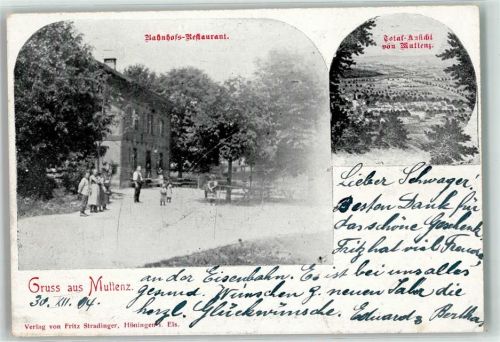 Bahnhofs-Restaurant.
Total-Ansicht
von Muttenz.
Lieber Schwager!
Besten Dank für
das schöne Geschenk.
Fritz hat viel Freude
Gruss aus Muttenz.
30. XII. 04.
an der Eisenbahn. Es ist bei uns alles
gesund. Wünschen z. neuen Jahr die
herzl. Glückwünsche. Eduard & Bertha
Verlag von Fritz Stradinger, Hüningen i. Els.